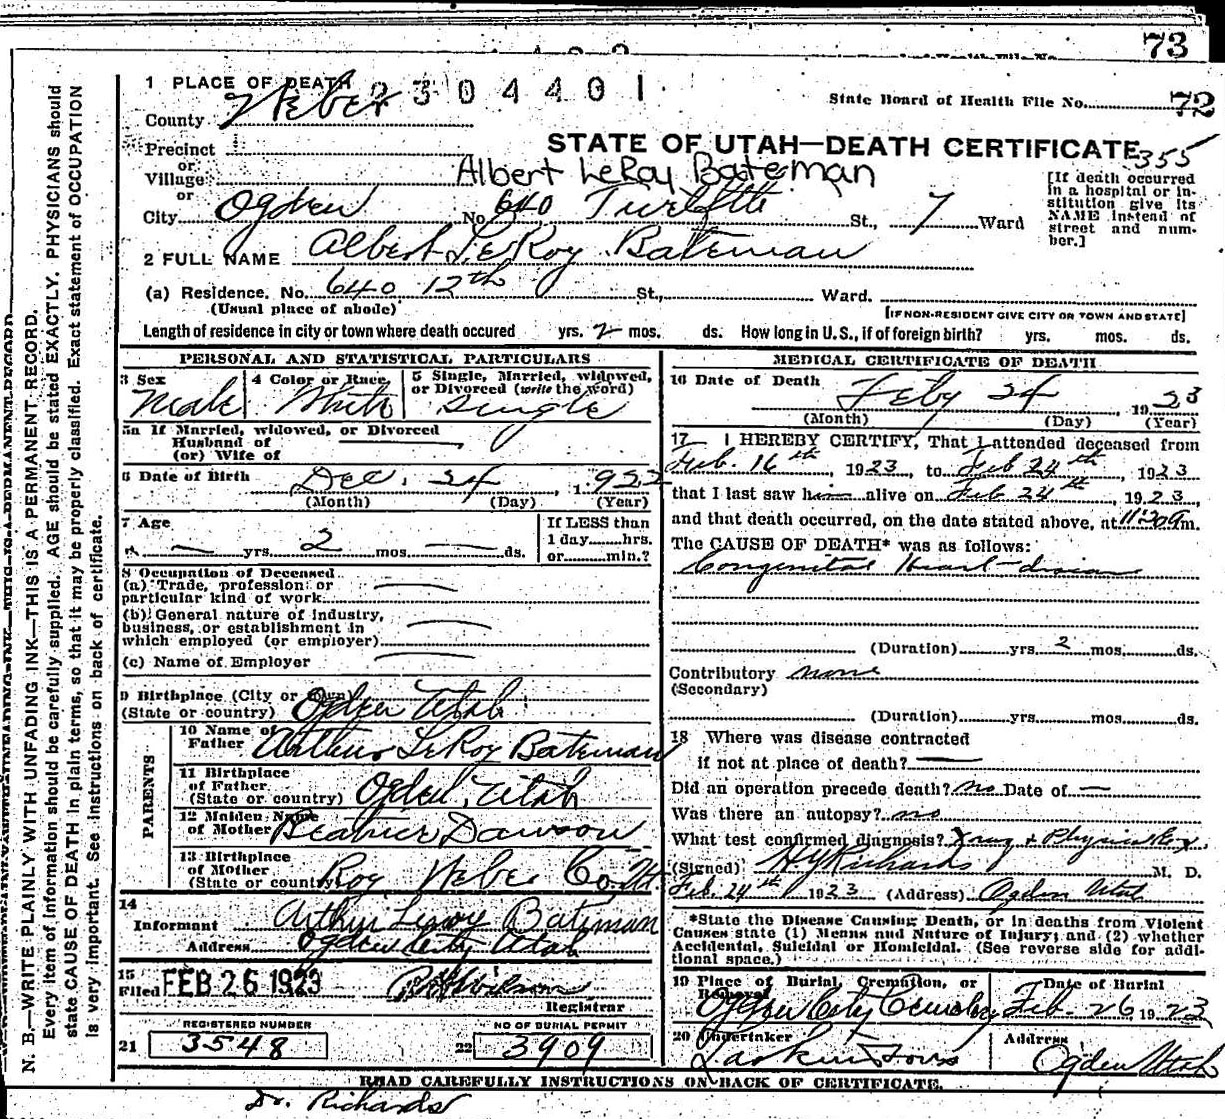 73
1 PLACE OF DEATH 2304401
State Board of Health File No. 72
County Weber
STATE OF UTAH—DEATH CERTIFICATE 355
Precinct
or
Village
or
Albert LeRoy Bateman
City Ogden No. 640 Twelfth St., 7 Ward
[If death occurred
in a hospital or in-
stitution give its
NAME instead of
street and num-
ber.]
2 FULL NAME Albert LeRoy Bateman
(a) Residence. No. 640 12th St., Ward.
(Usual place of abode)
[IF NON-RESIDENT GIVE CITY OR TOWN AND STATE]
Length of residence in city or town where death occured yrs. 2 mos. ds. How long in U.S., if of foreign birth? yrs. mos. ds.
PERSONAL AND STATISTICAL PARTICULARS
3 Sex Male
4 Color or Race White
5 Single, Married, widowed,
or Divorced (write the word)
Single
5a If Married, widowed, or Divorced
Husband of
(or) Wife of
6 Date of Birth Dec. 24, 1922
(Month) (Day) (Year)
7 Age
— yrs. 2 mos. — ds.
If LESS than
1 day......hrs.
or......min.?
8 Occupation of Deceased
(a) Trade, profession or
particular kind of work —
(b) General nature of industry,
business, or establishment in
which employed (or employer) —
(c) Name of Employer —
9 Birthplace (City or town)
(State or country) Ogden Utah
PARENTS
10 Name of
Father Arthur LeRoy Bateman
11 Birthplace
of Father
(State or country) Ogden, Utah
12 Maiden Name
of Mother Beatrice Dawson
13 Birthplace
of Mother
(State or country) Roy Weber Co. Ut.
14
Informant Arthur Leroy Bateman
Address Ogden City Utah
15
Filed FEB 26 1923
Wilson
Registrar
REGISTERED NUMBER
21 3548
NO OF BURIAL PERMIT
22 3909
MEDICAL CERTIFICATE OF DEATH
16 Date of Death Feby 24, 1923
(Month) (Day) (Year)
17 I HEREBY CERTIFY, That I attended deceased from
Feb. 16th, 1923, to Feb 24th, 1923
that I last saw him alive on Feb 24th, 1923,
and that death occurred, on the date stated above, at 11:30 a m.
The CAUSE OF DEATH* was as follows:
Congenital Heart disease
(Duration) yrs. 2 mos. ds.
Contributory none
(Secondary)
(Duration) yrs. mos. ds.
18 Where was disease contracted
if not at place of death? —
Did an operation precede death? no Date of —
Was there an autopsy? no
What test confirmed diagnosis? Xray + Physical Ex.
(Signed) H Y Richards M. D.
Feb. 24th 1923 (Address) Ogden Utah
*State the Disease Causing Death, or in deaths from Violent
Causes state (1) Means and Nature of Injury; and (2) whether
Accidental, Suicidal or Homicidal. (See reverse side for addi-
tional space.)
19 Place of Burial, Cremation, or
Removal
Ogden City Cemetery
Date of Burial
Feb. 26, 1923
20 Undertaker
Larkin & Sons
Address
Ogden Utah
READ CAREFULLY INSTRUCTIONS ON BACK OF CERTIFICATE.
Dr. Richards
N. B.—WRITE PLAINLY WITH UNFADING INK—THIS IS A PERMANENT RECORD.
Every item of information should be carefully supplied. AGE should be stated EXACTLY. PHYSICIANS should
state CAUSE OF DEATH in plain terms, so that it may be properly classified. Exact statement of OCCUPATION
is very important. See instructions on back of certificate.